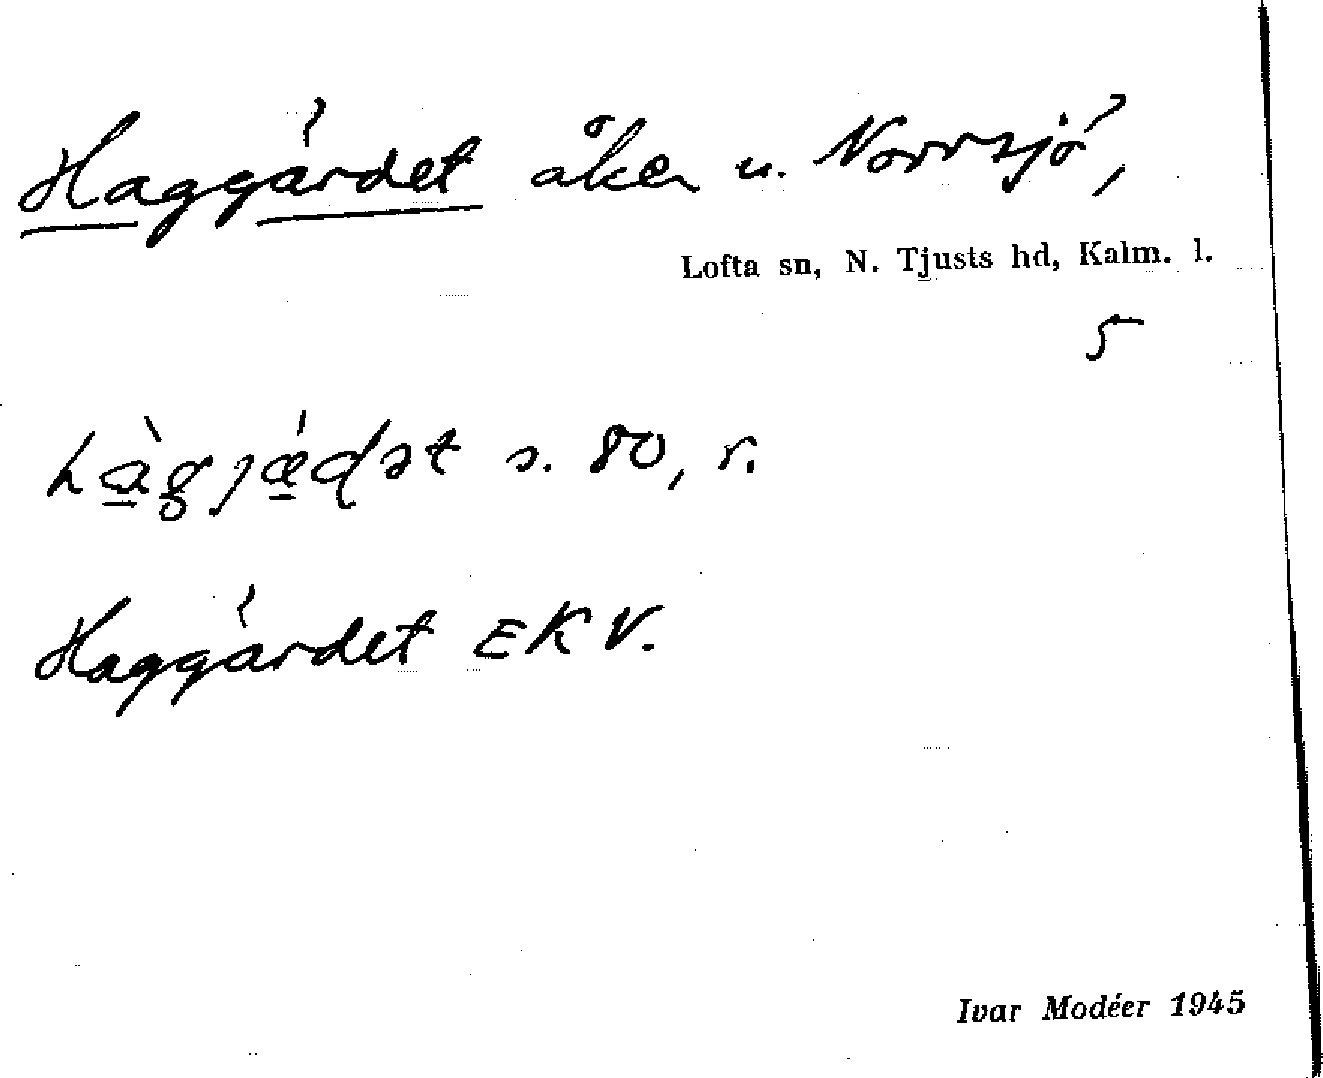 Haggärdet åker u. Norrsjö,
Lofta sn, N. Tjusts hd, Kalm. l.
5
s. 80, r.
Haggärdet EKV.
Ivar Modéer 1945